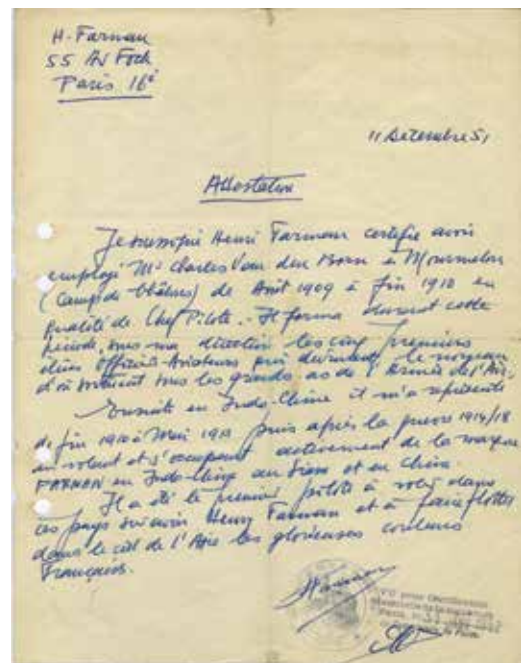 H. Farman
55 Av Foch
Paris 16e
11 Décembre 51
Attestation
Je soussigné Henri Farman certifie avoir
employé Mr Charles Van den Born à Mourmelon
(Camp de Châlons) de Août 1909 à fin 1910 en
qualité de Chef Pilote. - Il forma durant cette
période, sous ma direction les cinq premiers
élèves Officiers-Aviateurs qui devinrent le noyau
d'où sortirent tous les grands as de l'Armée de l'Air.
Ensuite en Indo-Chine il m'a représenté
de fin 1910 à Mai 1911 puis après la guerre 1914/18
en volant et s'occupant activement de la marque
FARMAN en Indo-Chine au Siam et en Chine.
Il a été le premier pilote à voler dans
ces pays sur avion Henry Farman et à faire flotter
dans le ciel de l'Asie les glorieuses couleurs
Françaises.
HFarman
Vu pour